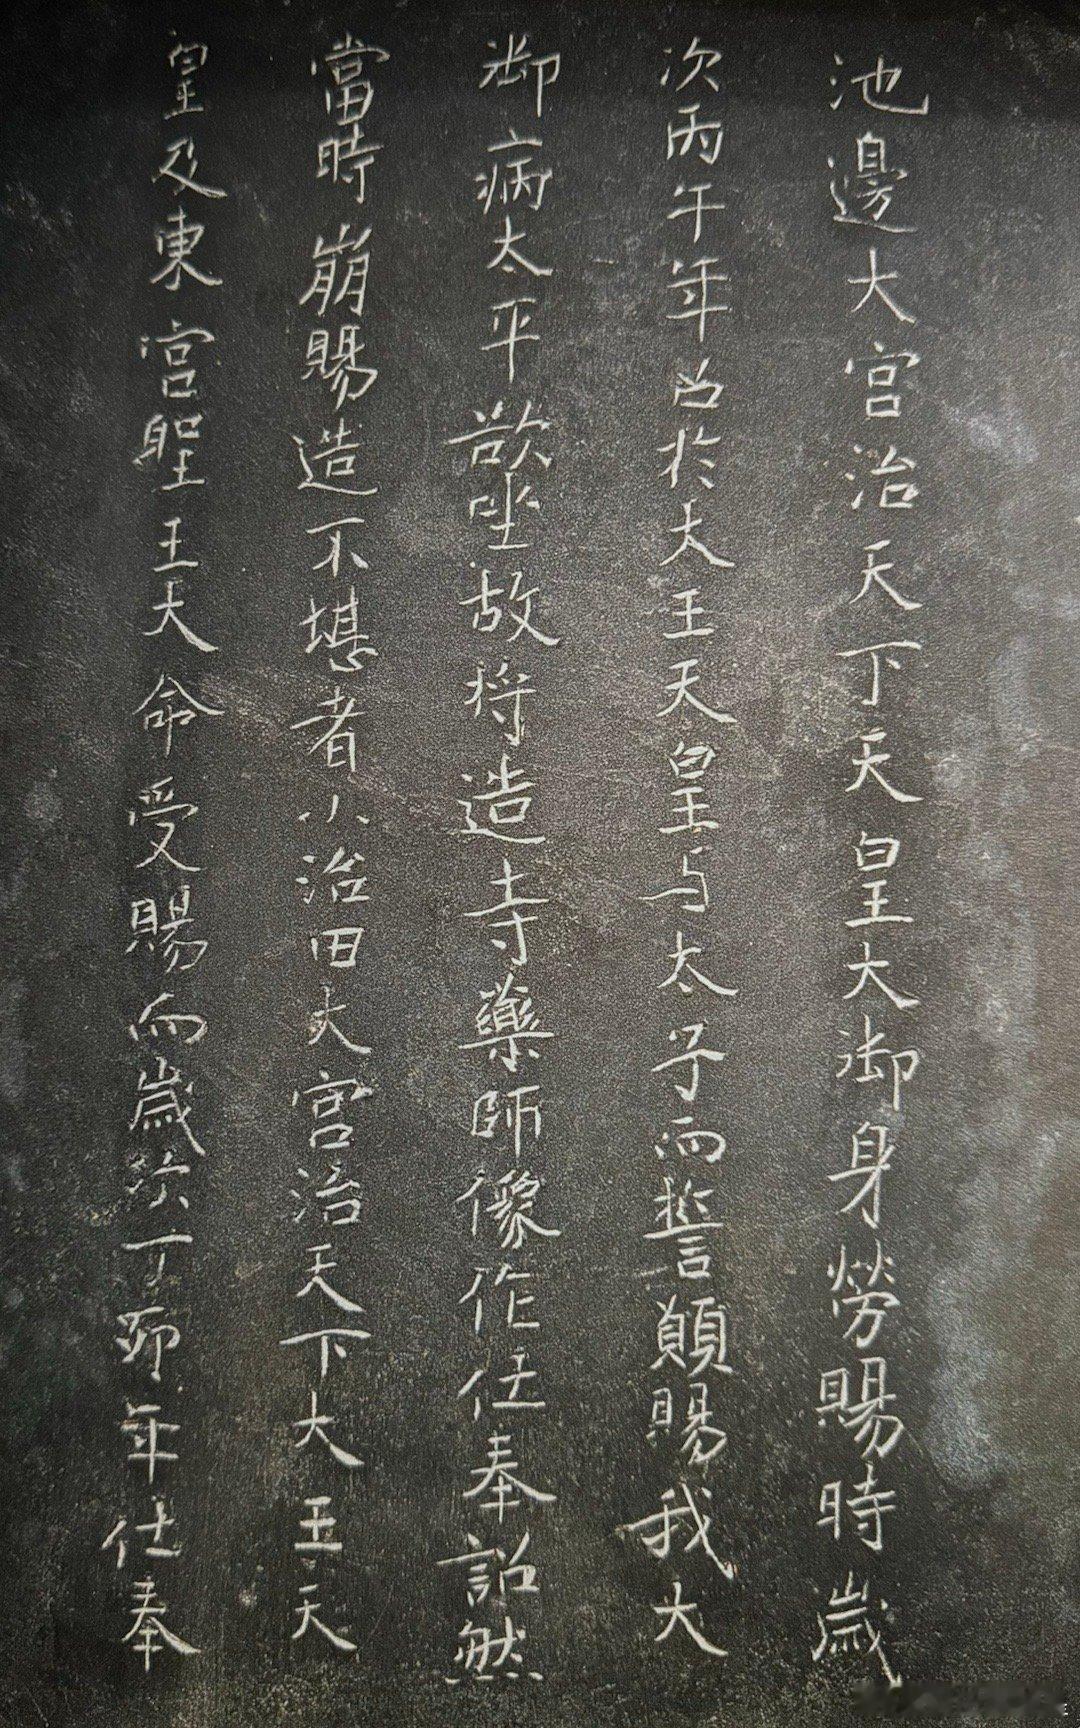 池邊大宮治天下天皇大御身勞賜時歲
次丙午年召於太王天皇与太子而誓願賜我大
御病太平欲坐故将造寺藥師像作仕奉詔然
當時崩賜造不堪者小治田大宮治天下大王天
皇及東宮聖王大命受賜而歲次丁卯年仕奉